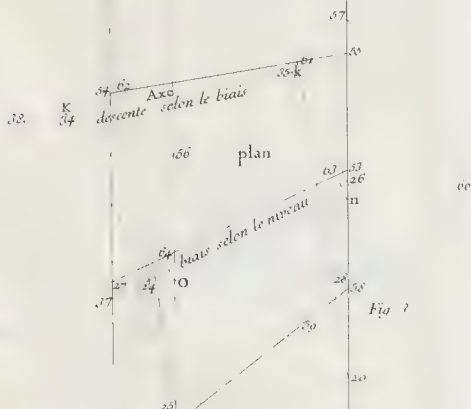 57
55
54 62
Axe
35 k
K
54
descente selon le biais
56
plan
63 53
26
n
biais selon le niveau
64
27
37
24
O
28
58
Fig
59
20
25